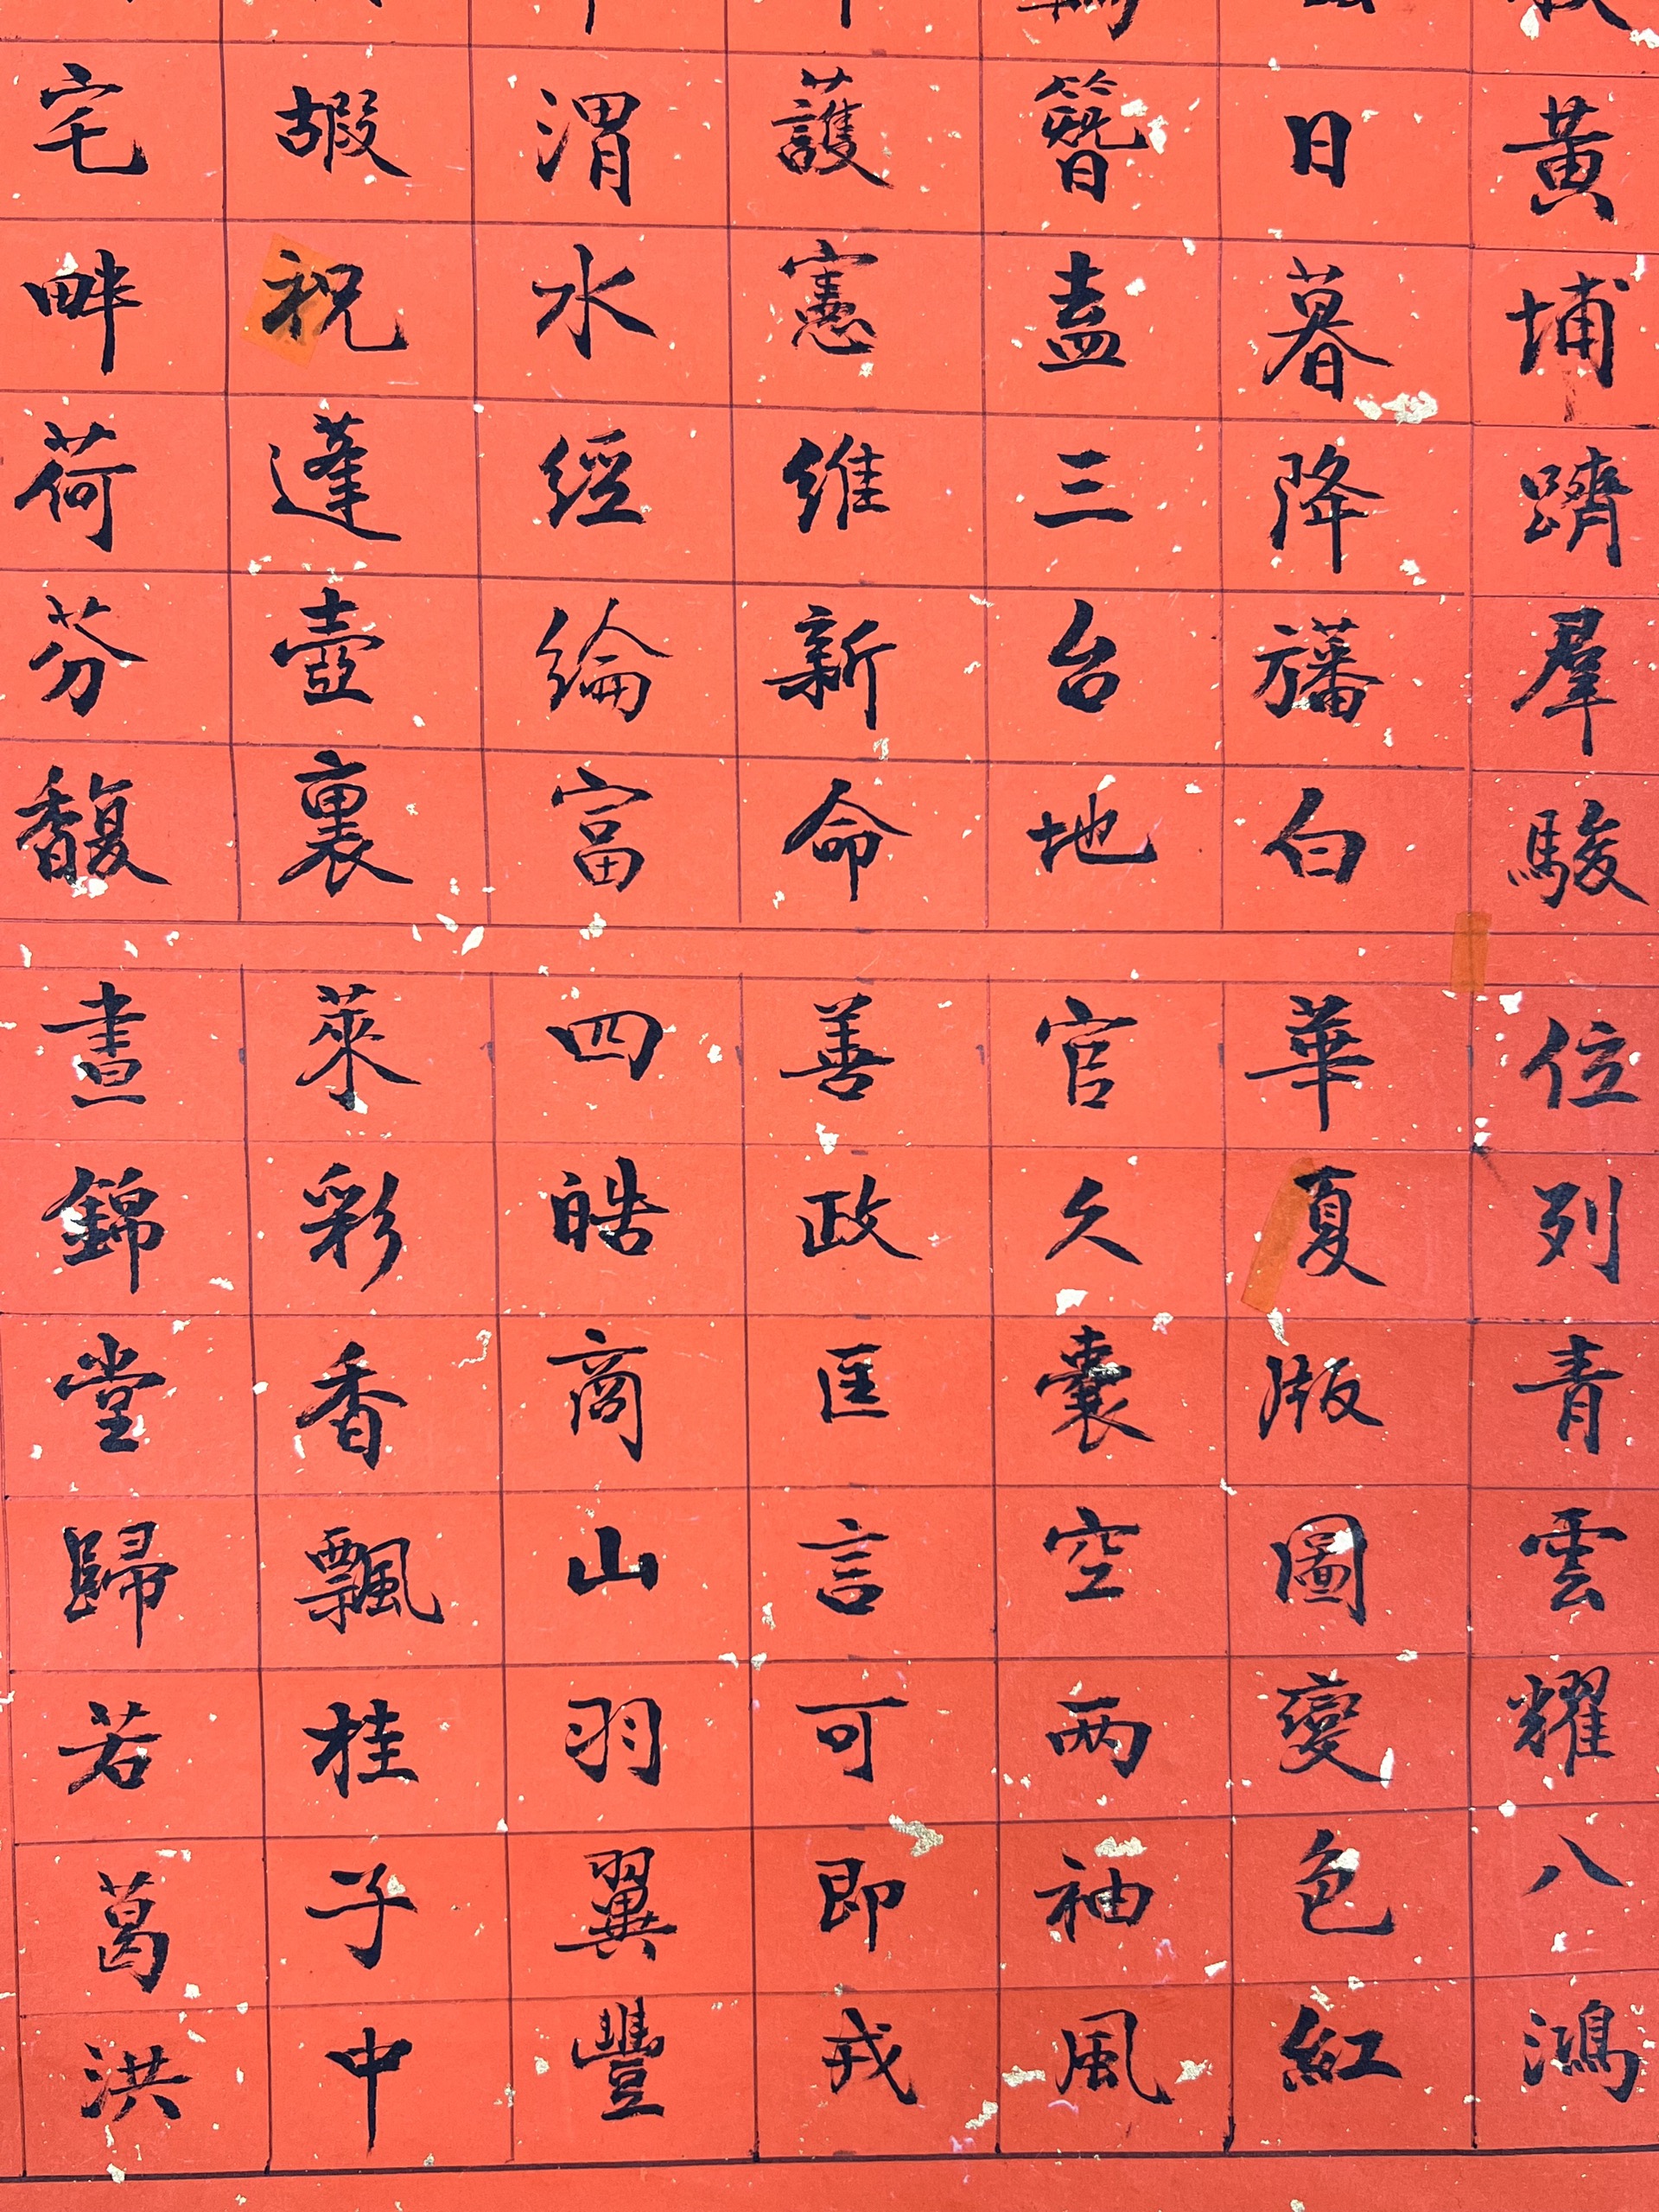 黃埔躋羣駿
位列青雲耀八鴻
日暮降旛白
華夏版圖變色紅
簪盍三台地
官久囊空兩袖風
護憲維新命
善政匡言可即戎
渭水經綸富
四皓商山羽翼豐
嘏祝蓬壺裏
萊彩香飄桂子中
宅畔荷芬馥
晝錦堂歸若葛洪